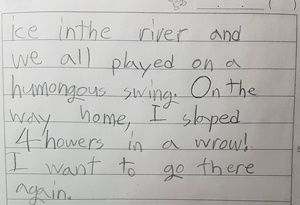 Ice in the river and
we all played on a
humongous swing. On the
way home, I sleped
4 howers in a wrow!
I want to go there
again.